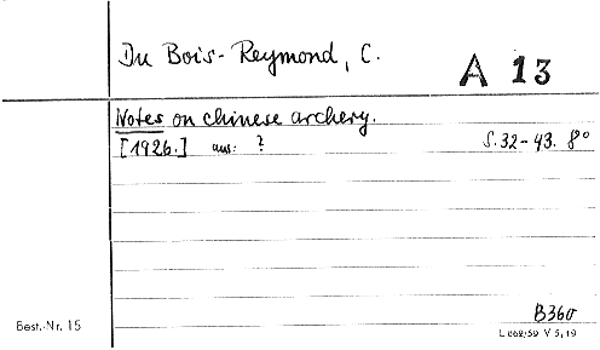 Du Bois-Reymond, C.
A 13
Notes on chinese archery.
[1926.] aus: ? S. 32-43. 8°
B360
Best.-Nr. 15
V 5, 19